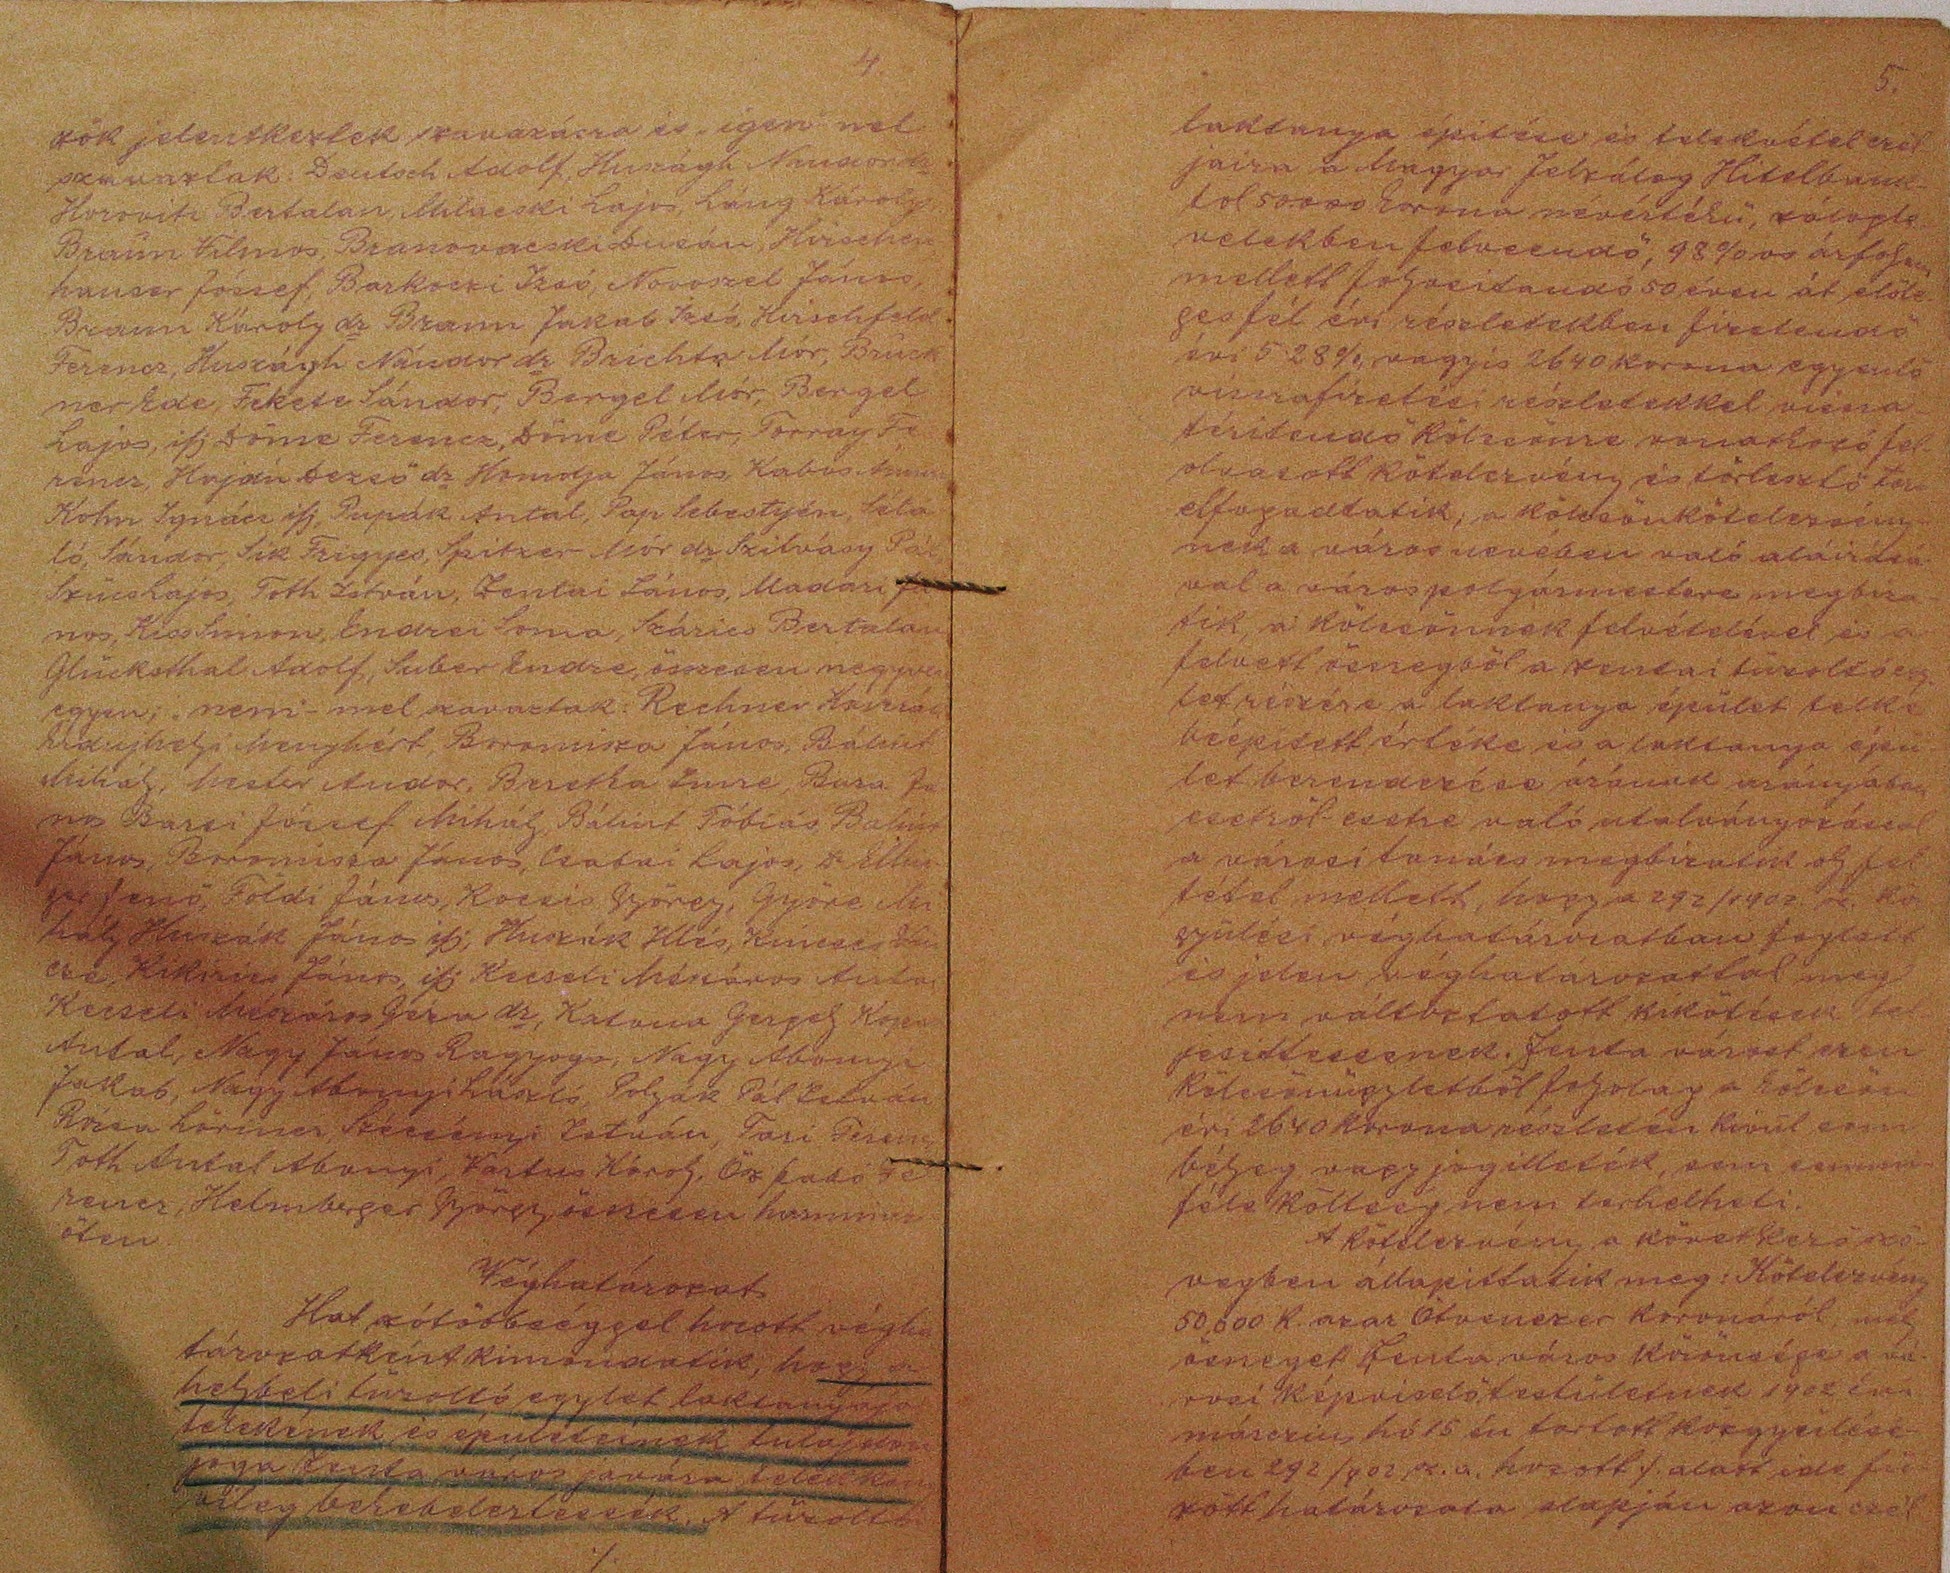 4.
zök jelentkeztek szavazásra és „igen" nel
szavaztak: Deutsch Adolf, Huszágh Nándor dr
Horovitz Bertalan, Milacski Lajos, Láng Károly,
Braun Vilmos, Branovacski Dusán, Hirschen
hauser József, Barkoczi Izsó, Novoszel János,
Braun Károly dr Braun Jakab Izsó, Hirschfeld
Ferencz, Huszágh Nándor dr Brichta Mór, Brück
ner Ede, Fekete Sándor, Bergel Mór, Bergel
Lajos, ifj Döme Ferencz, Döme Péter, Torray Fe
rencz, Hajdu Dezső dr Homolya János, Kabos
Kohn Ignácz ifj, Pupák Antal, Pap Sebestyén, Séta
ló, Sándor, Sík Frigyes, Spitzer Mór dr Szilvásy Pál
Szűcs Lajos, Toth István, Zentai János, Madari Já
nos, Kiss Simon, Endrei Soma, Szárics Bertalan
Glücksthal Adolf, Suber Endre, összesen negyven
egyen; „nem"-mel szavaztak: Rechner
Menyhért, Boromisza János, Bálint
Mihály, Meder Andor, Beretka Imre, Bura Já
nos Barsi József Mihály, Bálint Tóbiás, Bálint
János, Boromisza János, Csabai Lajos, dr
ger Jenő, Földi János, Kocsis György, Györe Mi
hály Huszák János ifj, Huszák Illés, Kincses Vin
cze, Kikirics János, ifj Kecseli Mészáros Antal
Kecseli Mészáros Géza dr, Katona Gergely
Antal, Nagy János Ragyogo, Nagy Abonyi
Jakab, Nagy Abonyi László, Polyák Pál István
Rózsa Lőrincz, Szécsényi István, Tari Ferencz
Toth Antal Abonyi, Vartus Károly, Ősz Szabó Fe
rencz, Helmberger György, összesen harmincz
öten
Véghatározat
Hat szótöbbséggel hozott végha
tározatként kimondatik, hogy a
helybeli tűzoltó egylet laktanyája
telekének és épületeinek tulajdon
joga Zenta város javára telekköny
vileg bekebeleztessék. A tűzoltó
./.
5.
laktanya építése és telekvétel czél
jaira a Magyar Jelzálog Hitelbank-
tol 50.000 korona névértékű, záloglo
velekben felveendő, 98 %os árfolyam
mellett folyósítandó 50 éven át előle
ges fél évi részletekben fizetendő
évi 5 28 %, vagyis 2640 korona egyenlő
visszafizetési részletekkel vissza-
térítendő kölcsönre vonatkozó fel-
olvasott kötelezvény és törlesztő terv
elfogadtatik; a kölcsönkötelezvény-
nek a város nevében való aláírásá
val a város polgármestere megbiza-
tik, a kölcsönnek felvételével és a
felvett összegből a zentai tűzoltó egy-
let részére a laktanya épület telke
beépített értéke és a laktanya épü-
let berendezése árának arányában
esetről-esetre való utalványozással
a városi tanács megbizatik oly fel
tétel mellett, hogy a 292/1902. sz. köz
gyülési véghatározatban foglalt
és jelen véghatározattal meg
nem változtatott kikötések tel-
jesíttessenek. Zenta várost ezen
kölcsönügyletből folyolag a kölcsön
évi 2640 korona részletén kívül sem
bélyeg vagy jogilleték, sem semmi-
féle költség nem terhelheti.
A kötelezvény a következő szö-
vegben állapittatik meg: Kötelezvény
50,000 K. azaz Ötvenezer koronáról, mely
összeget Zenta város közönsége a vá-
rosi képviselőtestületnek 1902 évi
márczius hó 15 én tartott közgyülésé-
ben 292/902 sz. a. hozott ./. alatt ide fü-
zött határozata alapján azon czél